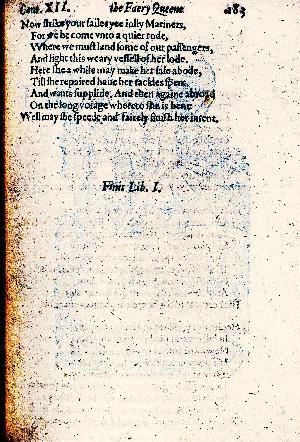 Cant. XII. the Faery Queene 183
Now strike your sailes yee iolly Mariners,
For we be come vnto a quiet rode,
Where we must land some of our passengers,
And light this weary vessell of her lode.
Here she a while may make her safe abode,
Till she repaired haue her tackles spent,
And wants supplide. And then againe abroad
On the long voiage whereto she is bent:
Well may she speede and fairely finish her intent.
Finis Lib. I.